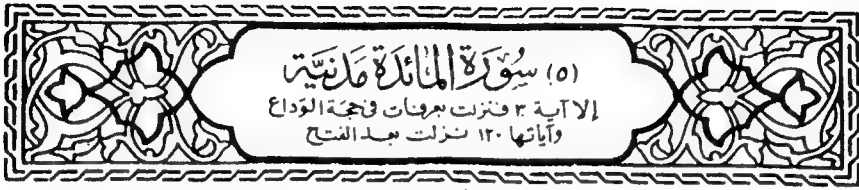 (٥) سُورَةُ المَائِدَةِ مَدَنِيَّة
إلا آية ٣ فنزلت بعرفات في حجة الوداع
وآياتها ١٢٠ نزلت بعد الفتح